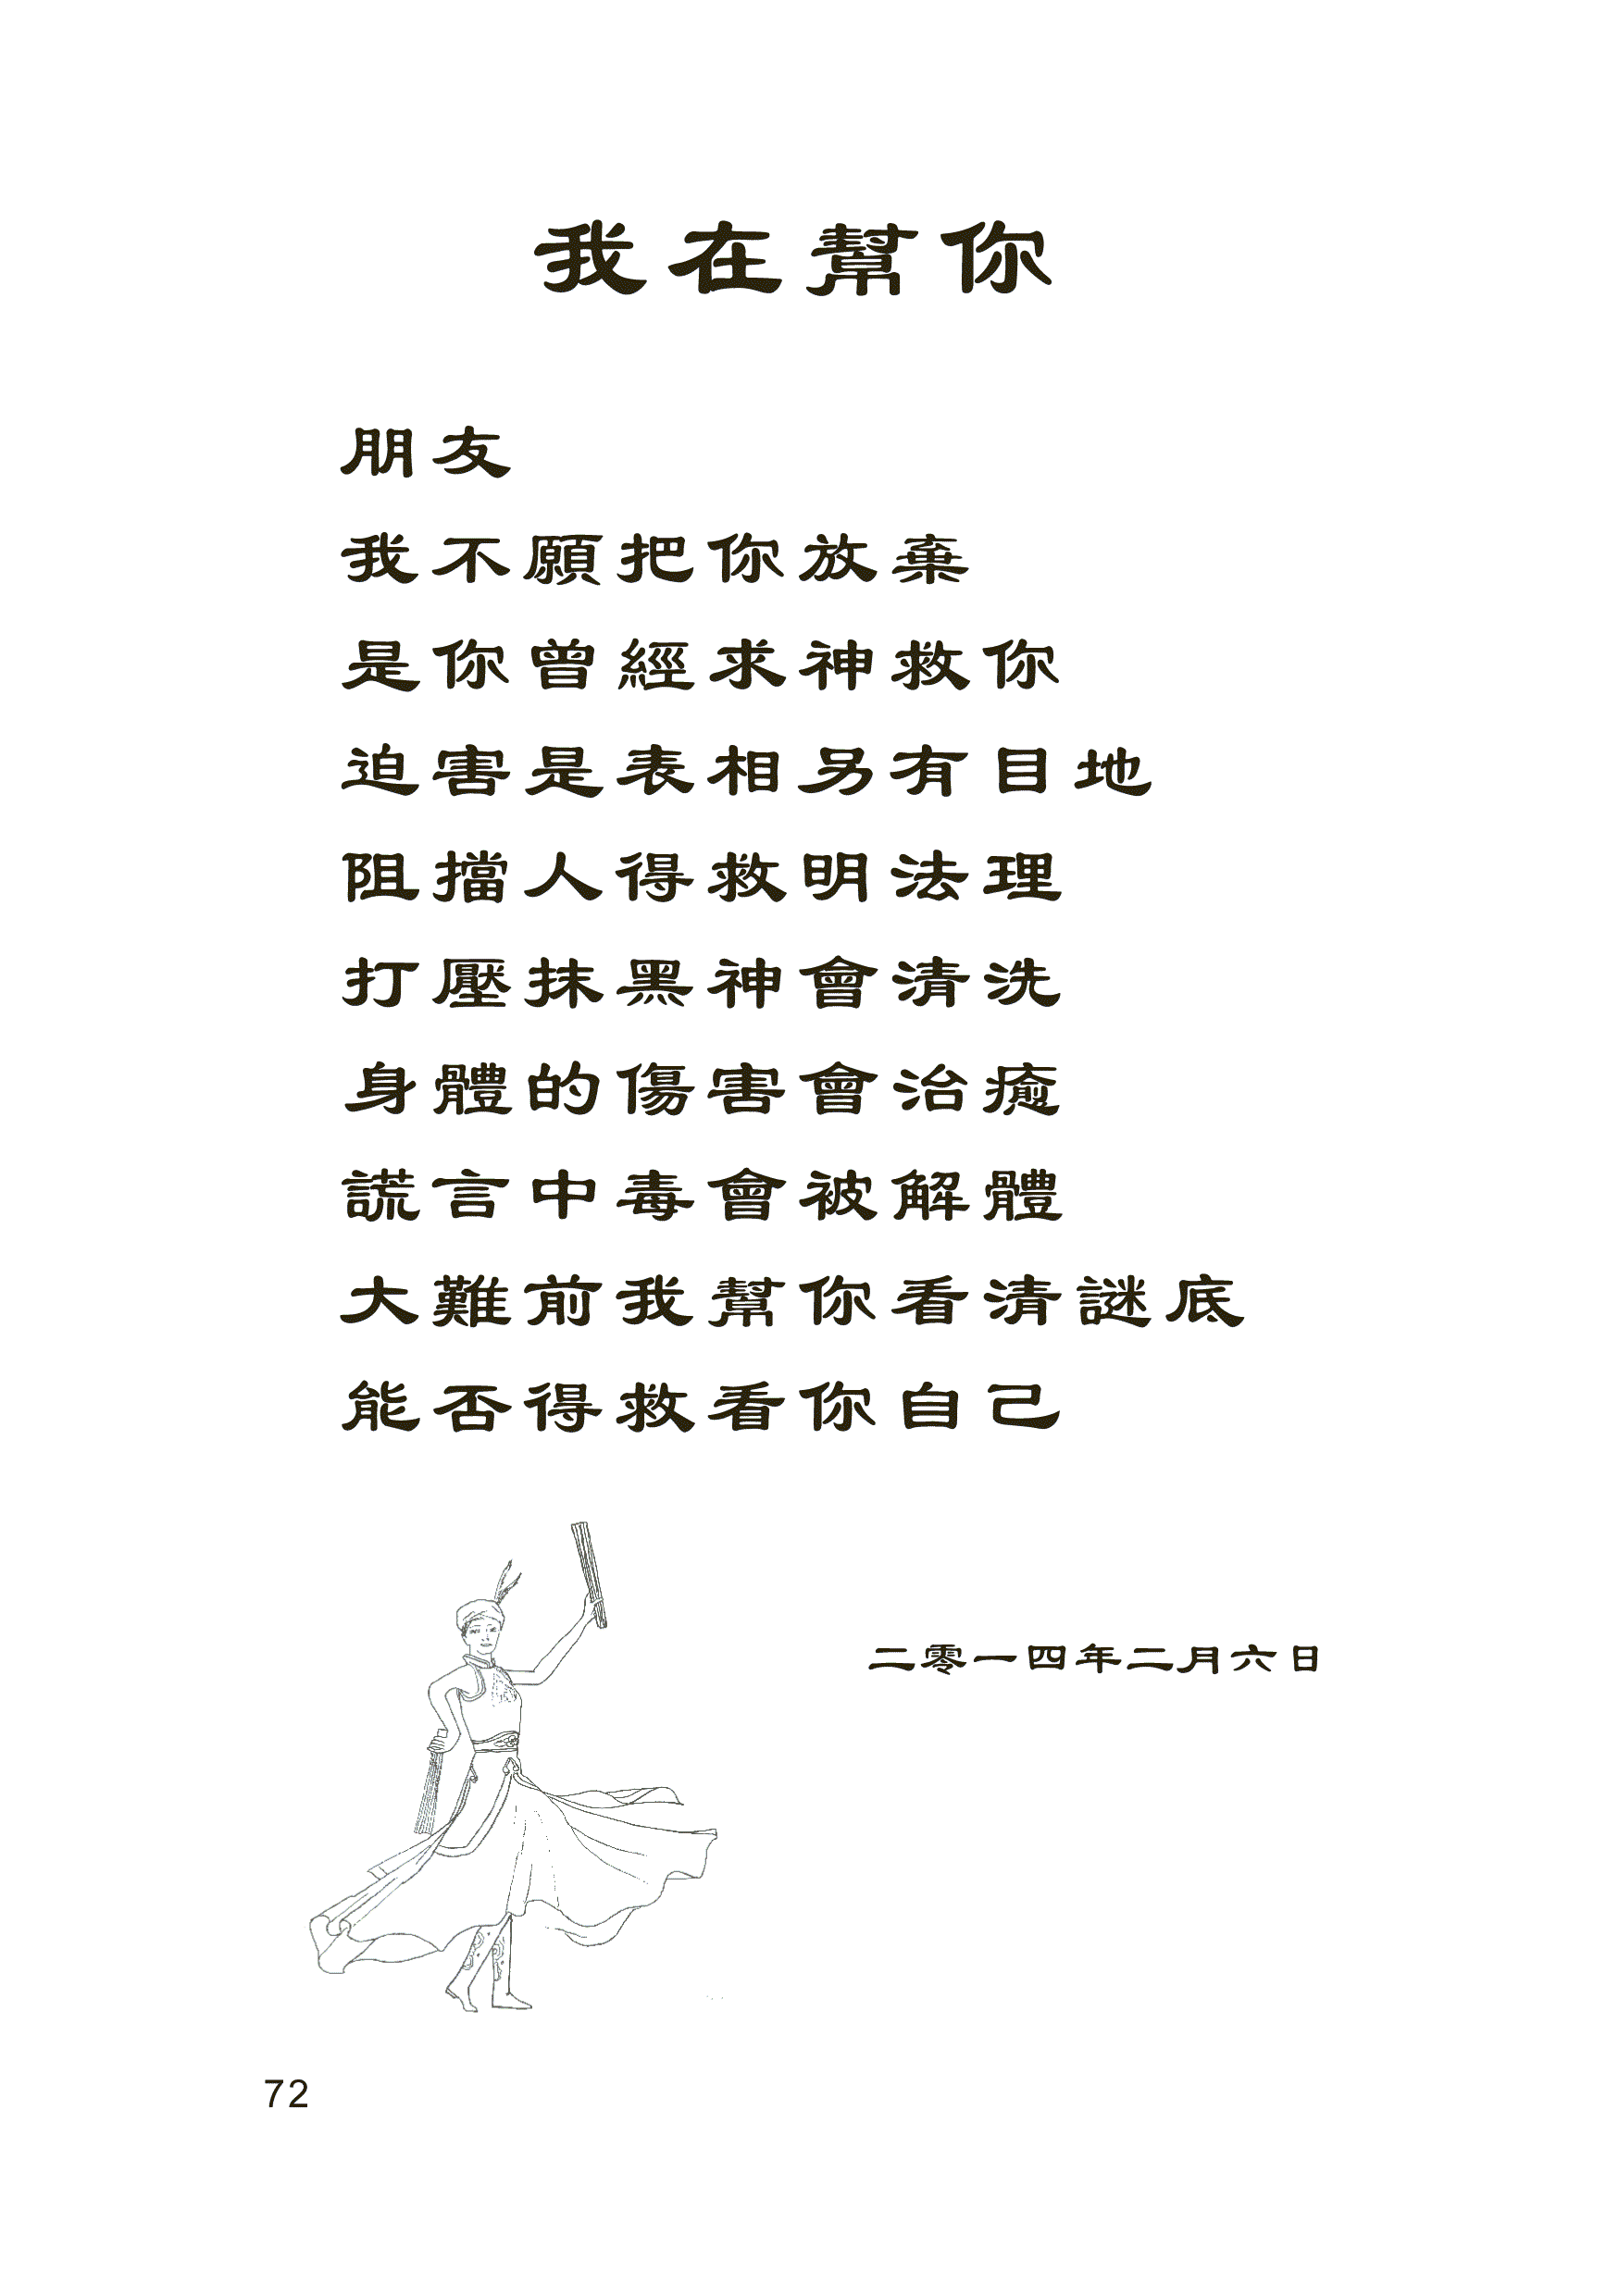 我在幫你
朋友
我不願把你放棄
是你曾經求神救你
迫害是表相另有目地
阻擋人得救明法理
打壓抹黑神會清洗
身體的傷害會治癒
謊言中毒會被解體
大難前我幫你看清謎底
能否得救看你自己
二零一四年二月六日
72